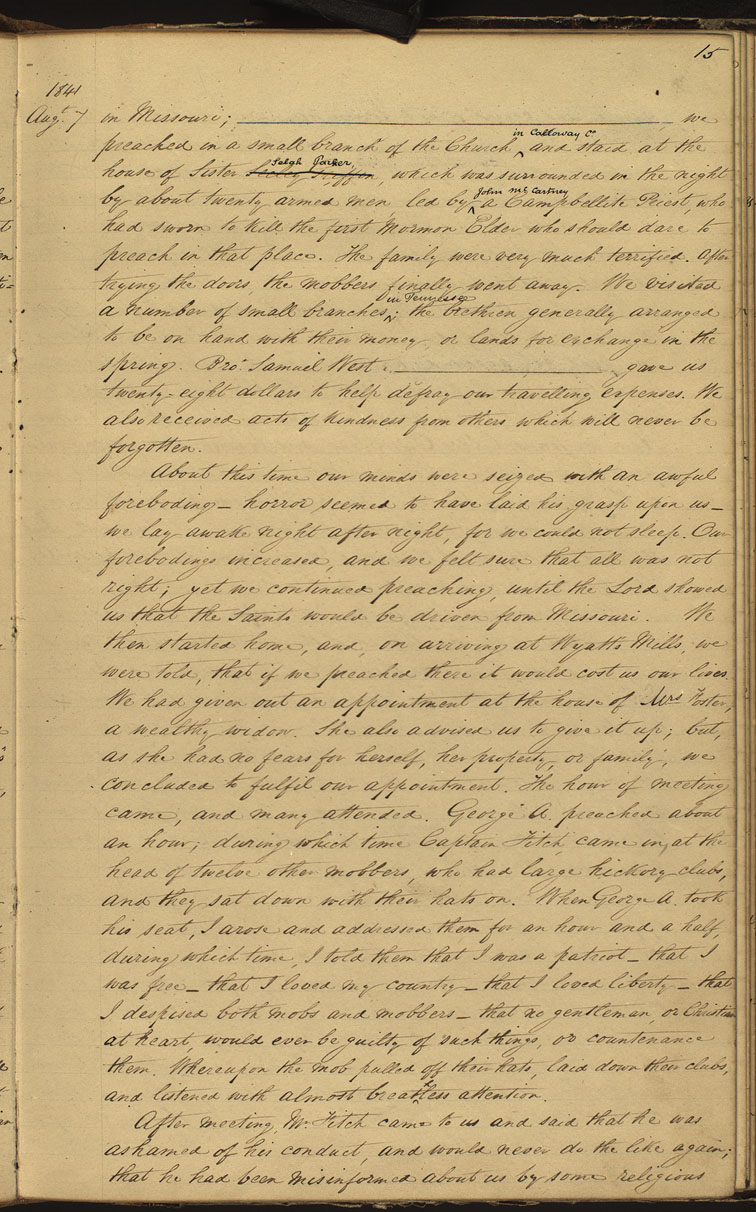 15
1841
Augt. 7 in Missouri; we
preached in a small branch of the Church in Calloway Co. and staid at the
house of Sister Selgh Parker, which was surrounded in the night
by about twenty armed men, led by John McCartney a Campbellite Priest, who
had sworn to kill the first Mormon Elder who should dare to
preach in that place. The family were very much terrified. After
trying the doors, the mobbers finally went away. We visited
a number of small branches in Tennessee; the brethren generally arranged
to be on hand with their money, or lands for exchange in the
spring. Bro. Samuel West gave us
twenty-eight dollars to help defray our travelling expenses. We
also received acts of kindness from others which will never be
forgotten.
About this time our minds were seized with an awful
foreboding – horror seemed to have laid his grasp upon us –
we lay awake night after night, for we could not sleep. Our
forebodings increased, and we felt sure that all was not
right; yet we continued preaching, until the Lord showed
us that the Saints would be driven from Missouri. We
then started home, and, on arriving at Wyatts Mills, we
were told, that if we preached there it would cost us our lives.
We had given out an appointment at the house of Mrs Foster,
a wealthy widow. She also advised us to give it up; but,
as she had no fears for herself, her property, or family, we
concluded to fulfil our appointment. The hour of meeting
came, and many attended. George A. preached about
an hour; during which time Captain Fitch came in, at the
head of twelve other mobbers, who had large hickory clubs,
and they sat down with their hats on. When George A. took
his seat, I arose and addressed them for an hour and a half,
during which time, I told them that I was a patriot – that I
was free – that I loved my country – that I loved liberty – that
I despised both mobs and mobbers – that no gentleman, or Christian
at heart, would ever be guilty of such things, or countenance
them. Whereupon the mob pulled off their hats, laid down their clubs,
and listened with almost breathless attention.
After meeting, Mr. Fitch came to us and said that he was
ashamed of his conduct, and would never do the like again;
that he had been misinformed about us by some religious